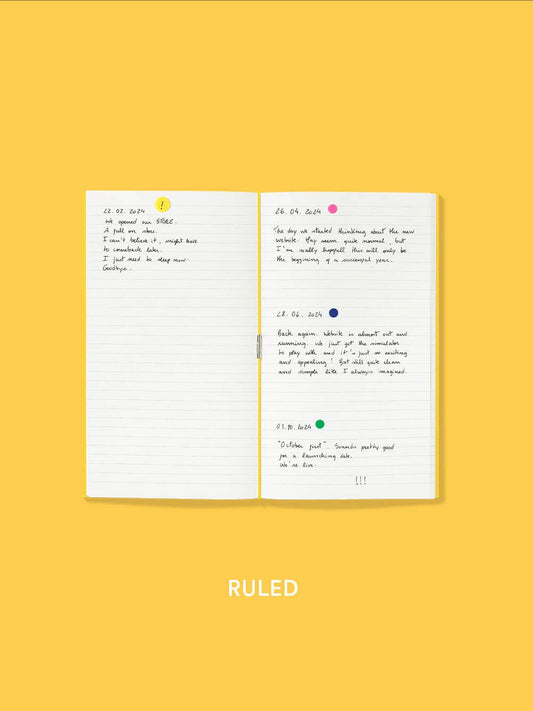 !
22.02.2024
We opened our STORE.
A full on store.
I can't believe it, might have
to comeback later.
I just need to sleep now.
Goodbye.
26.04.2024
The day we started thinking about the new
website. May seem quite normal, but
I'm really hopefull this will only be
the beggining of a successful year.
28.06.2024
Back again. Website is almost out and
running. We just got the simulator
to play with and it's just so exciting
and appealing! But still quite clean
and simple like I always imagined.
01.10.2024
"October first". Sounds pretty good
for a launching date.
We're live.
!!!
RULED